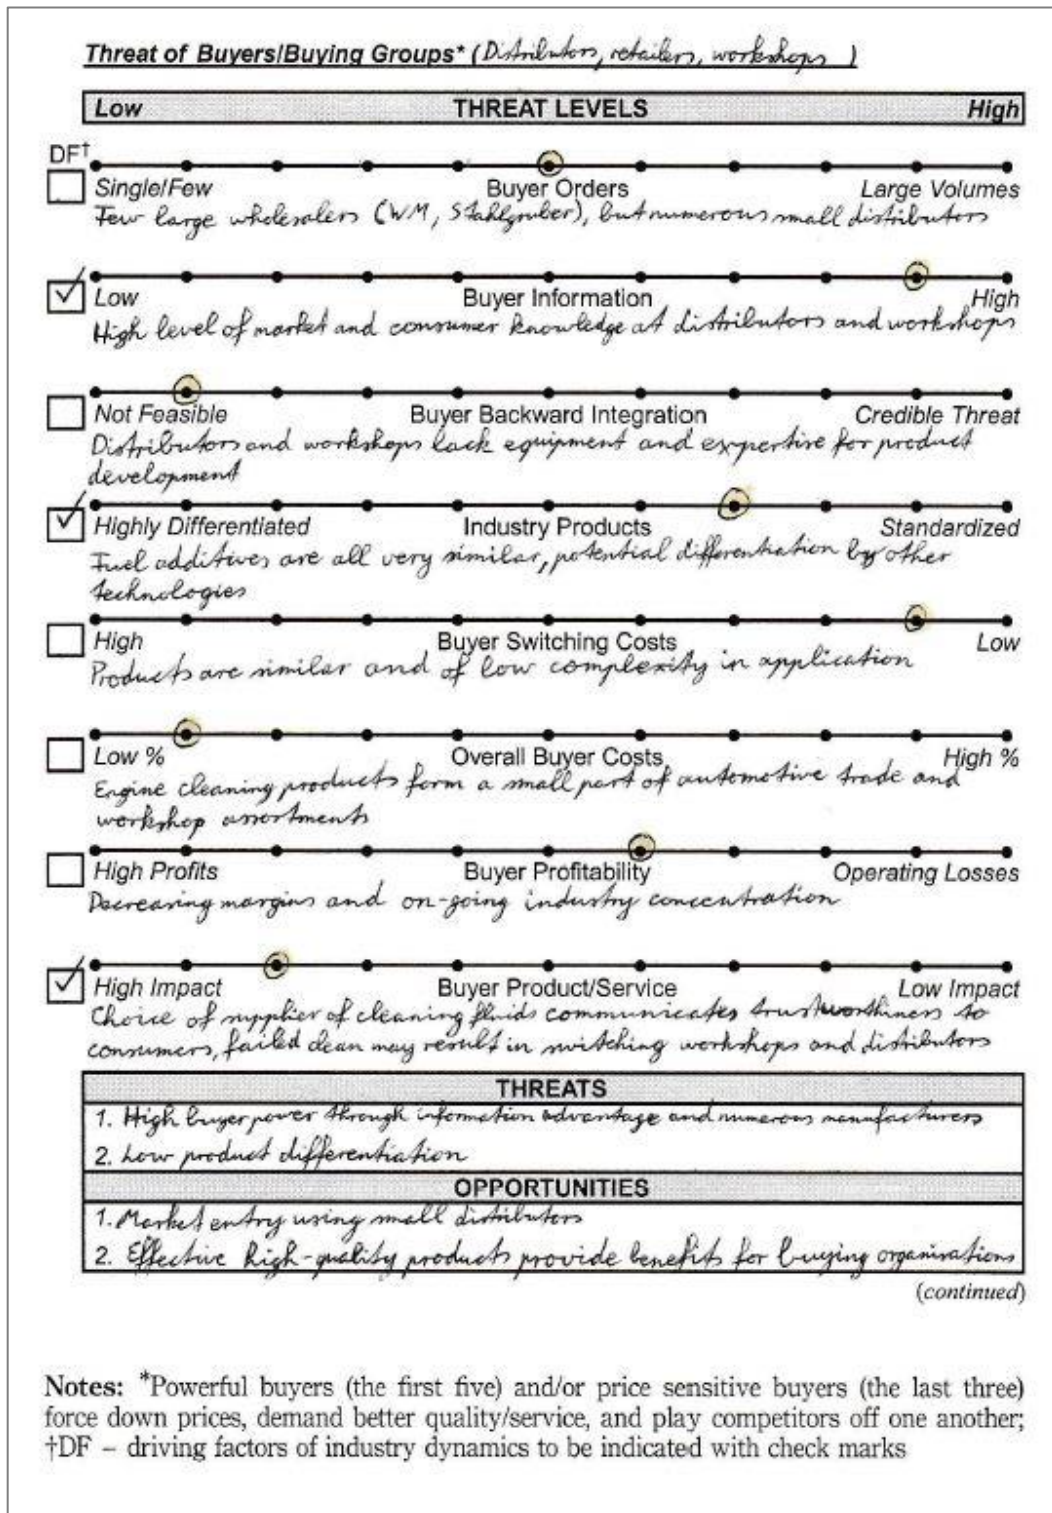 Threat of Buyers/Buying Groups* (Distributors, retailers, workshops )
Low THREAT LEVELS High
DF†
Single/Few Buyer Orders Large Volumes
Few large wholesalers (WM, Stahlgruber), but numerous small distributors
Low Buyer Information High
High level of market and consumer knowledge at distributors and workshops
Not Feasible Buyer Backward Integration Credible Threat
Distributors and workshops lack equipment and expertise for product
development
Highly Differentiated Industry Products Standardized
Fuel additives are all very similar, potential differentiation by other
technologies
High Buyer Switching Costs Low
Products are similar and of low complexity in application
Low % Overall Buyer Costs High %
Engine cleaning products form a small part of automotive trade and
workshop assortments
High Profits Buyer Profitability Operating Losses
Decreasing margins and on-going industry concentration
High Impact Buyer Product/Service Low Impact
Choice of supplier of cleaning fluids communicates trustworthiness to
consumers, failed clean may result in switching workshops and distributors
THREATS
1. High buyer power through information advantage and numerous manufacturers
2. Low product differentiation
OPPORTUNITIES
1. Market entry using small distributors
2. Effective high-quality products provide benefits for buying organisations
(continued)
Notes: *Powerful buyers (the first five) and/or price sensitive buyers (the last three)
force down prices, demand better quality/service, and play competitors off one another;
†DF – driving factors of industry dynamics to be indicated with check marks